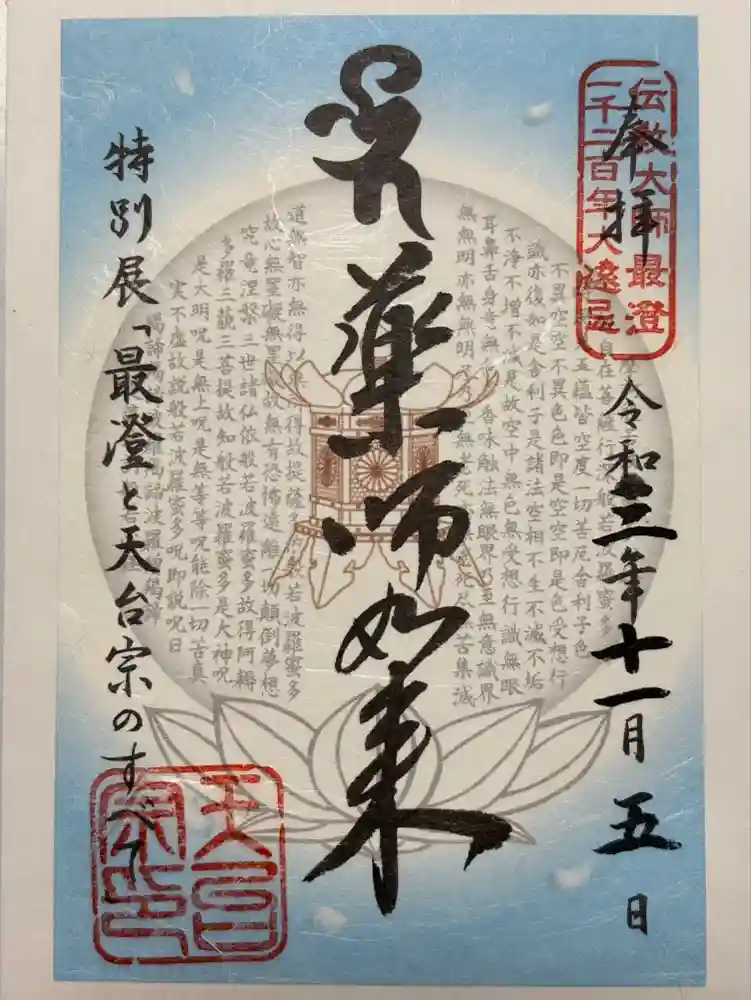 伝教大師最澄
一千二百年大遠忌
奉拝
令和三年十一月五日
薬師如来
特別展「最澄と天台宗のすべて」
天台
宗印
自在菩薩行深般若波羅蜜多
五蘊皆空度一切苦厄舎利子色
不異空空不異色色即是空空即是色受想行
識亦復如是舎利子是諸法空相不生不滅不垢
不浄不増不減是故空中無色無受想行識無眼
耳鼻舌身意無 香味触法無眼界 至無意識界
無無明亦無無明 無老死 老死尽無苦集滅
道無智亦無得以 得故提薩 般若波羅蜜多
故心無罣礙無罣 故無有恐怖遠離 切顛倒夢想
究竟涅槃三世諸仏依般若波羅蜜多故得阿耨
多羅三藐三菩提故知般若波羅蜜多是大神呪
是大明呪是無上呪是無等等呪能除一切苦真
実不虚故説般若波羅蜜多呪即説呪日
羯諦 波羅羯諦波羅僧羯諦